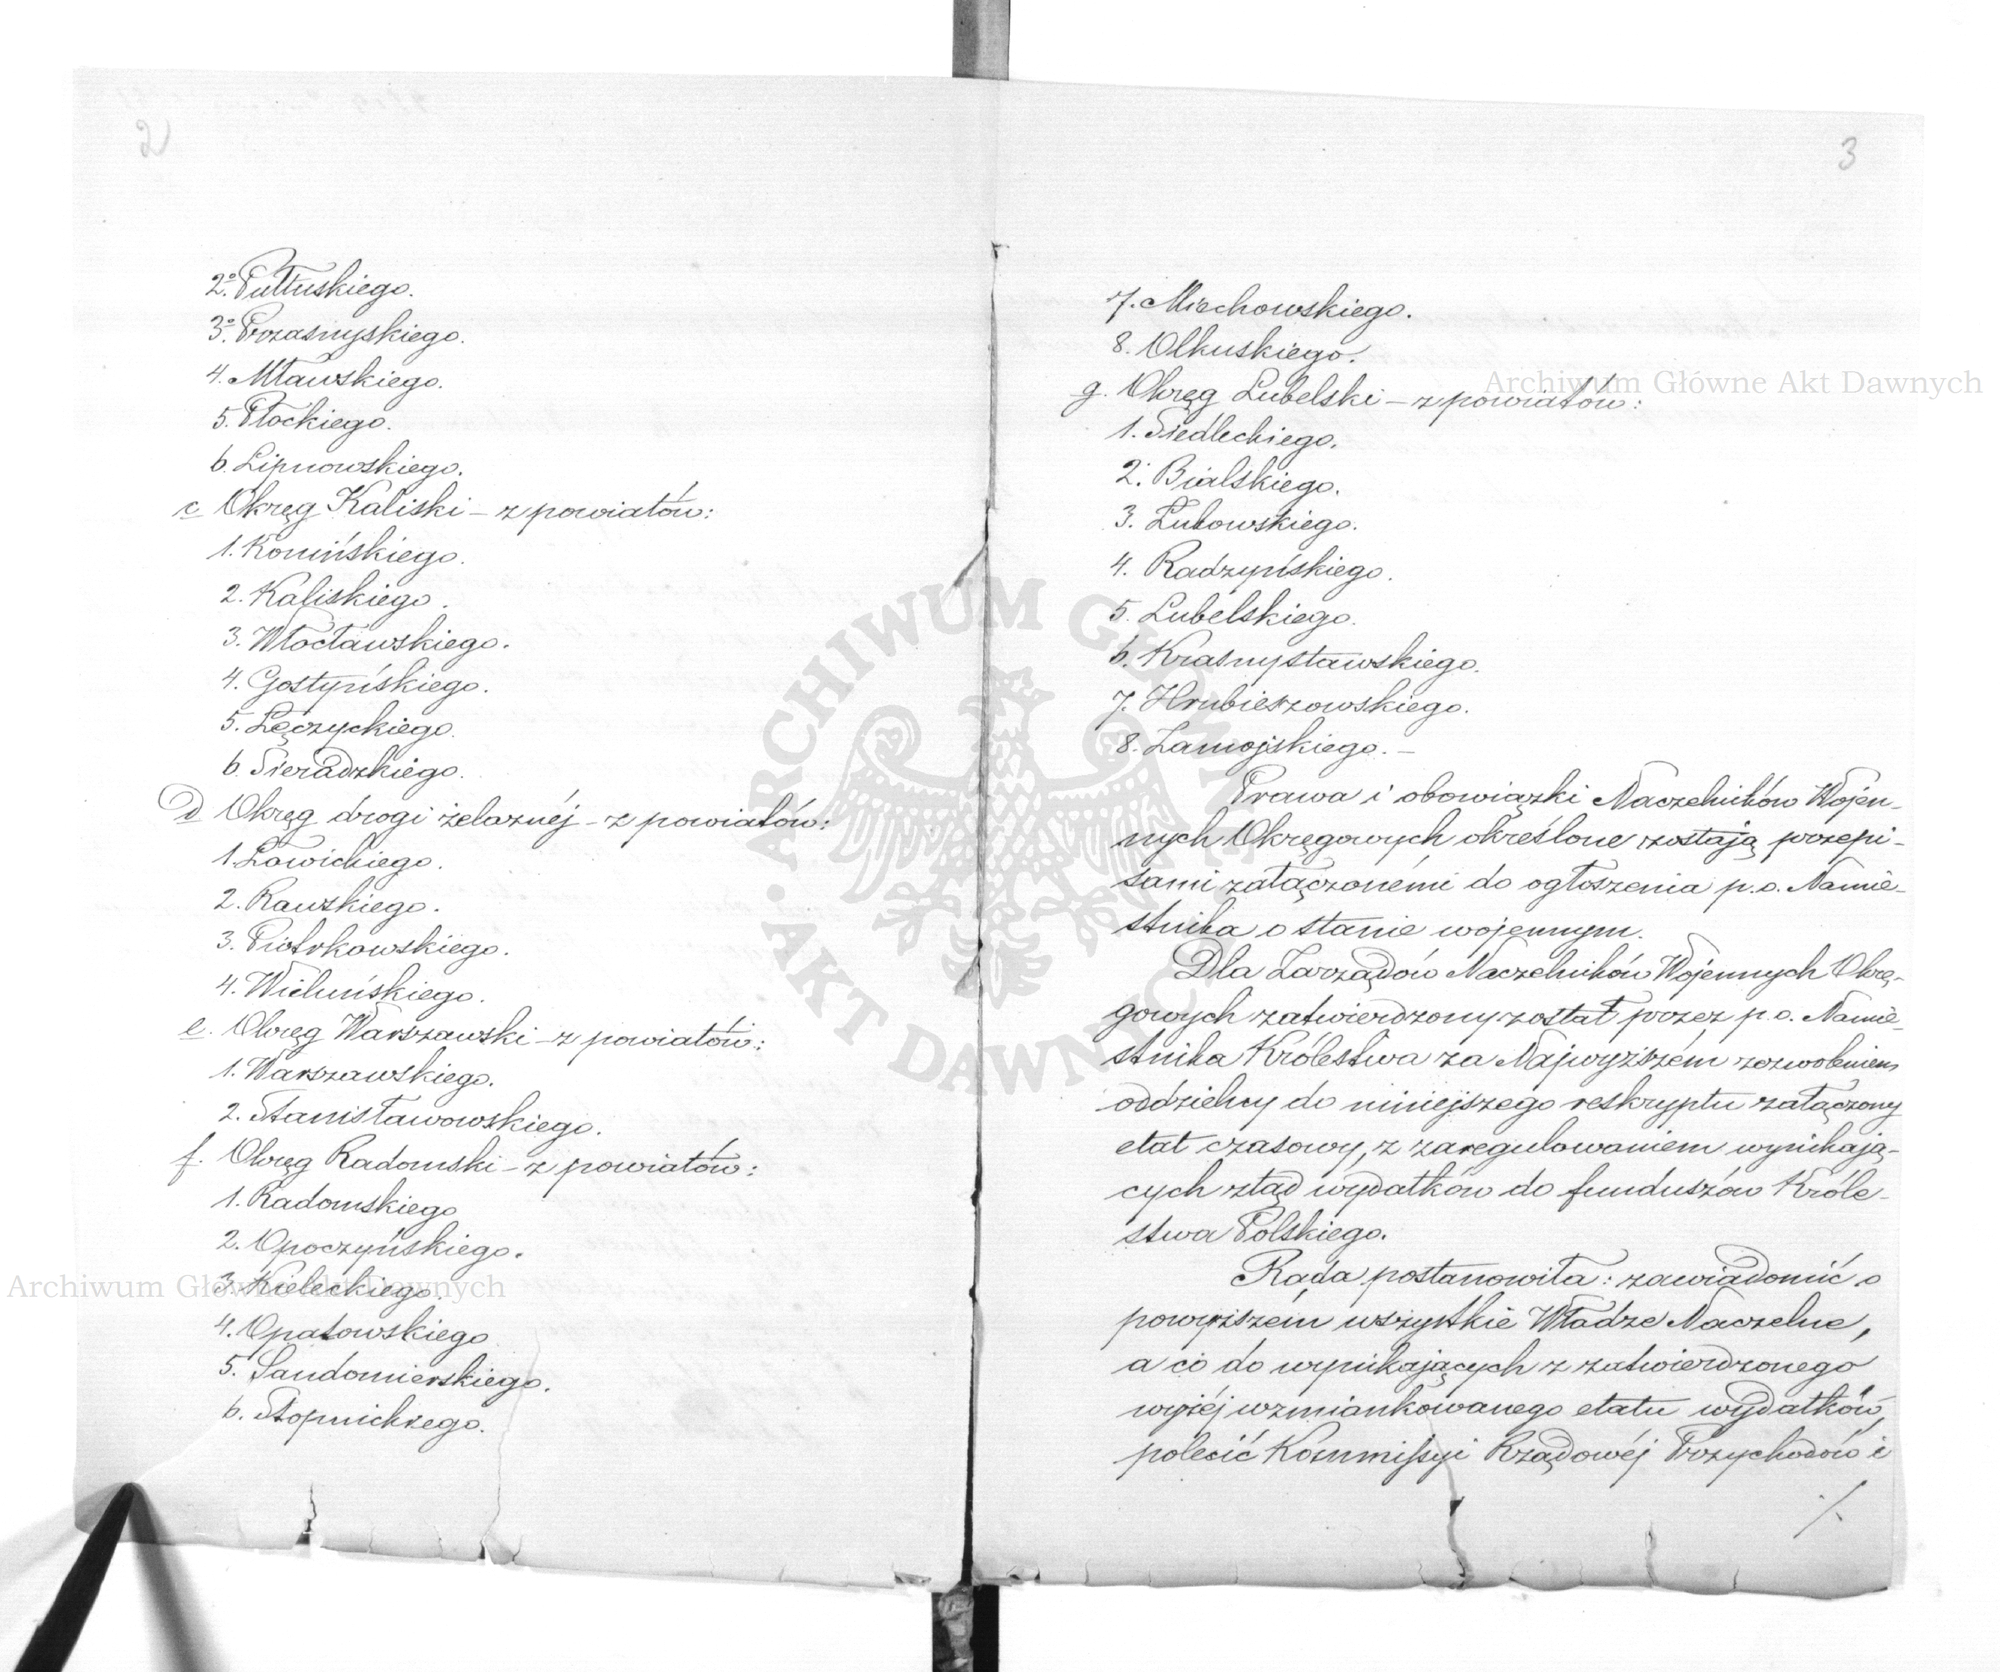 2
2º Pułtuskiego.
3º Przasnyskiego.
4. Mławskiego.
5. Płockiego.
6. Lipnowskiego.
c Okręg Kaliski – z powiatów:
1. Konińskiego.
2. Kaliskiego.
3. Włocławskiego.
4. Gostyńskiego.
5. Łęczyckiego.
6. Sieradzkiego.
d Okręg drogi żelaznéj – z powiatów:
1. Łowickiego.
2. Rawskiego.
3. Piotrkowskiego.
4. Wieluńskiego.
e. Okręg Warszawski – z powiatów:
1. Warszawskiego.
2. Stanisławowskiego.
f. Okręg Radomski – z powiatów:
1. Radomskiego
2. Opoczyńskiego.
3. Kieleckiego.
4. Opatowskiego
5. Sandomierskiego.
6. Stopnickiego.
3
7. Miechowskiego.
8. Olkuskiego.
g. Okręg Lubelski – z powiatów:
1. Siedleckiego.
2. Bialskiego.
3. Łukowskiego.
4. Radzyńskiego.
5. Lubelskiego.
6. Krasnystawskiego.
7. Hrubieszowskiego.
8. Zamojskiego. –
Prawa i obowiązki Naczelników Wojen-
nych Okręgowych określone zostają przepi-
sami załączonémi do ogłoszenia p.o. Namie-
stnika o stanie wojennym.
Dla Zarządów Naczelników Wojennych Okrę-
gowych zatwierdzony został przez p.o. Namie-
stnika Królestwa za Najwyższém zezwoleniem
oddzielny do niniejszego reskryptu załączony
etat czasowy, z zaregulowaniem wynikają-
cych ztąd wydatków do funduszów Króle-
stwa Polskiego.
Rada postanowiła: zawiadomić o
powyższém wszystkie Władze Naczelne,
a co do wynikających z zatwierdzonego
wyżéj wzmiankowanego etatu wydatków,
polecić Kommissyi Rządowéj Przychodów i
./.
Archiwum Główne Akt Dawnych
Archiwum Główne Akt Dawnych
ARCHIWUM GŁÓWNE AKT DAWNYCH